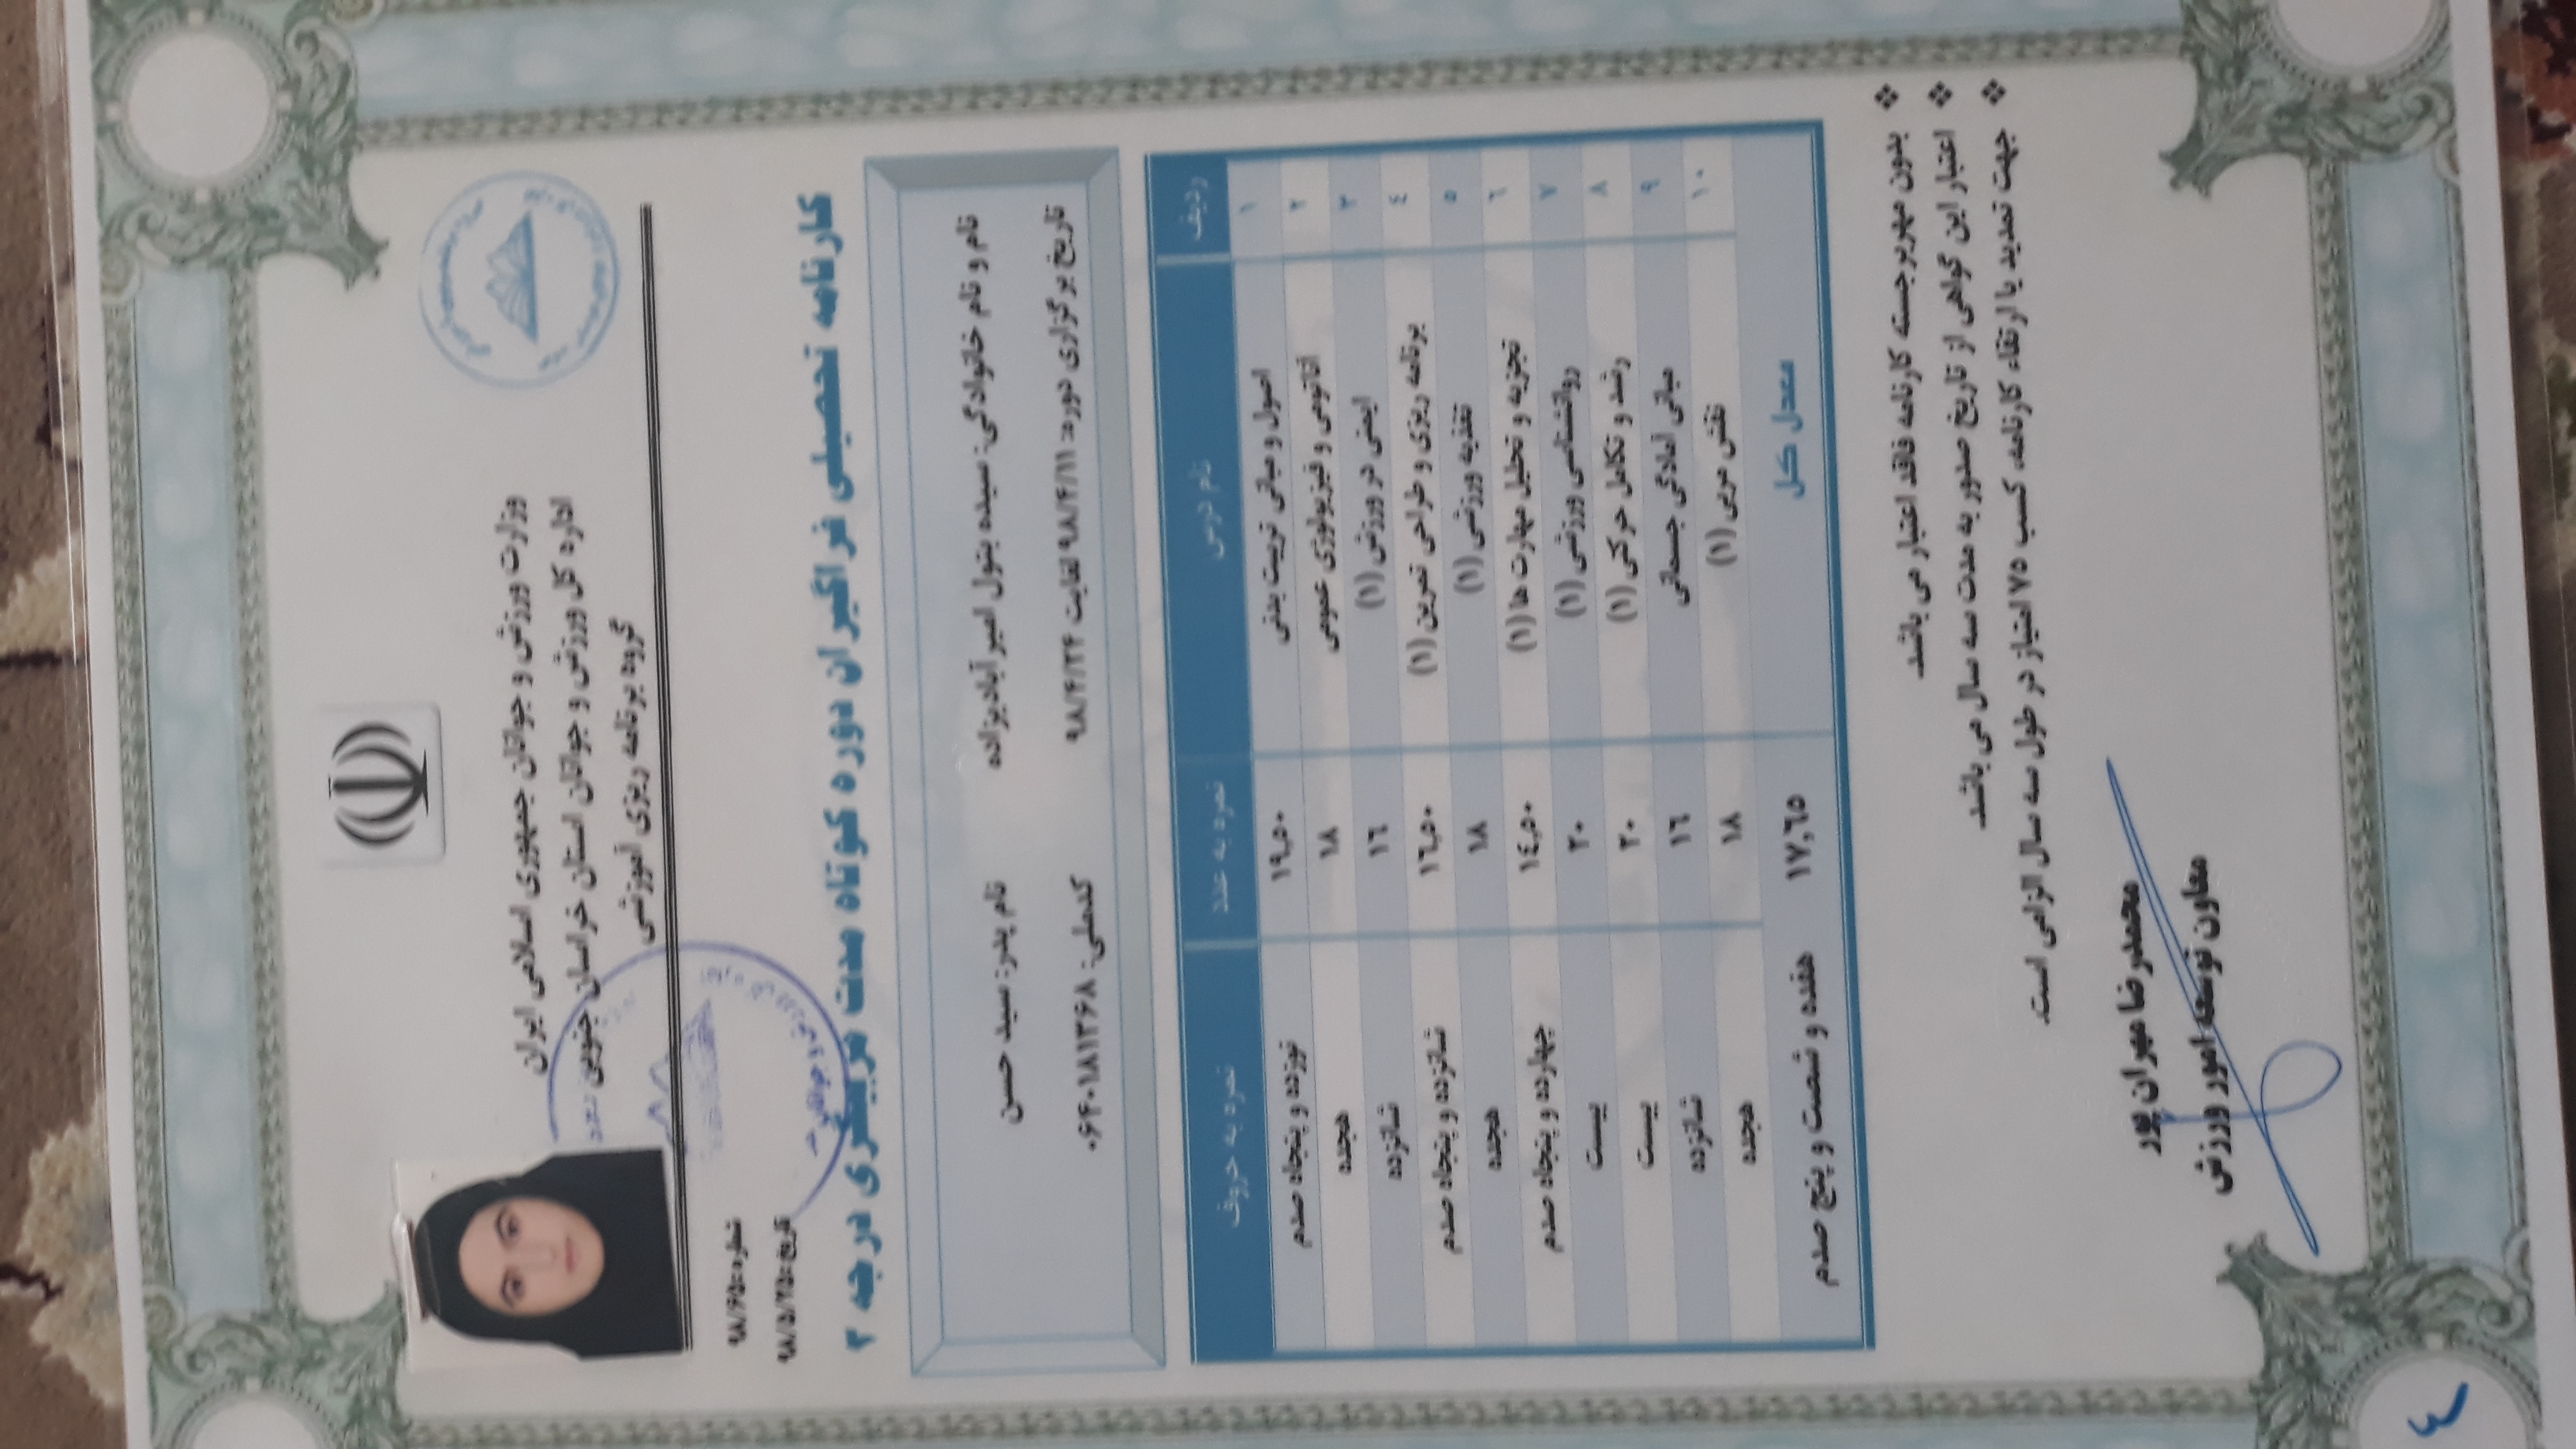 وزارت ورزش و جوانان جمهوری اسلامی ایران
اداره کل ورزش و جوانان استان خراسان جنوبی
گروه برنامه ریزی آموزشی
شماره:۹۸/۶۵
تاریخ:۹۸/۵/۲۵
کارنامه تحصیلی فراگیران دوره کوتاه مدت مربیگری درجه ۳
نام و نام خانوادگی: سیده بتول امیرآبادیزاده نام پدر: سید حسن
تاریخ برگزاری دوره: ۹۸/۴/۱۱ لغایت ۹۸/۴/۲۴ کدملی: ۰۶۴۰۱۸۱۳۶۸
ردیف نام درس نمره به عدد نمره به حروف
۱ اصول و مبانی تربیت بدنی ۱۹,۵۰ نوزده و پنجاه صدم
۲ آناتومی و فیزیولوژی عمومی ۱۸ هجده
۳ ایمنی در ورزش (۱) ۱٦ شانزده
٤ برنامه ریزی و طراحی تمرین (۱) ۱٦,۵۰ شانزده و پنجاه صدم
۵ تغذیه ورزشی (۱) ۱۸ هجده
٦ تجزیه و تحلیل مهارت ها (۱) ۱٤,۵۰ چهارده و پنجاه صدم
۷ روانشناسی ورزشی (۱) ۲۰ بیست
۸ رشد و تکامل حرکتی (۱) ۲۰ بیست
۹ مبانی آمادگی جسمانی ۱٦ شانزده
۱۰ نقش مربی (۱) ۱۸ هجده
معدل کل ۱۷,٦۵ هفده و شصت و پنج صدم
❖ بدون مهربرجسته کارنامه فاقد اعتبار می باشد.
❖ اعتبار این گواهی از تاریخ صدور به مدت سه سال می باشد.
❖ جهت تمدید یا ارتقاء کارنامه، کسب ۷۵ امتیاز در طول سه سال الزامی است.
محمدرضا مهران پور
معاون توسعه امور ورزش
٤